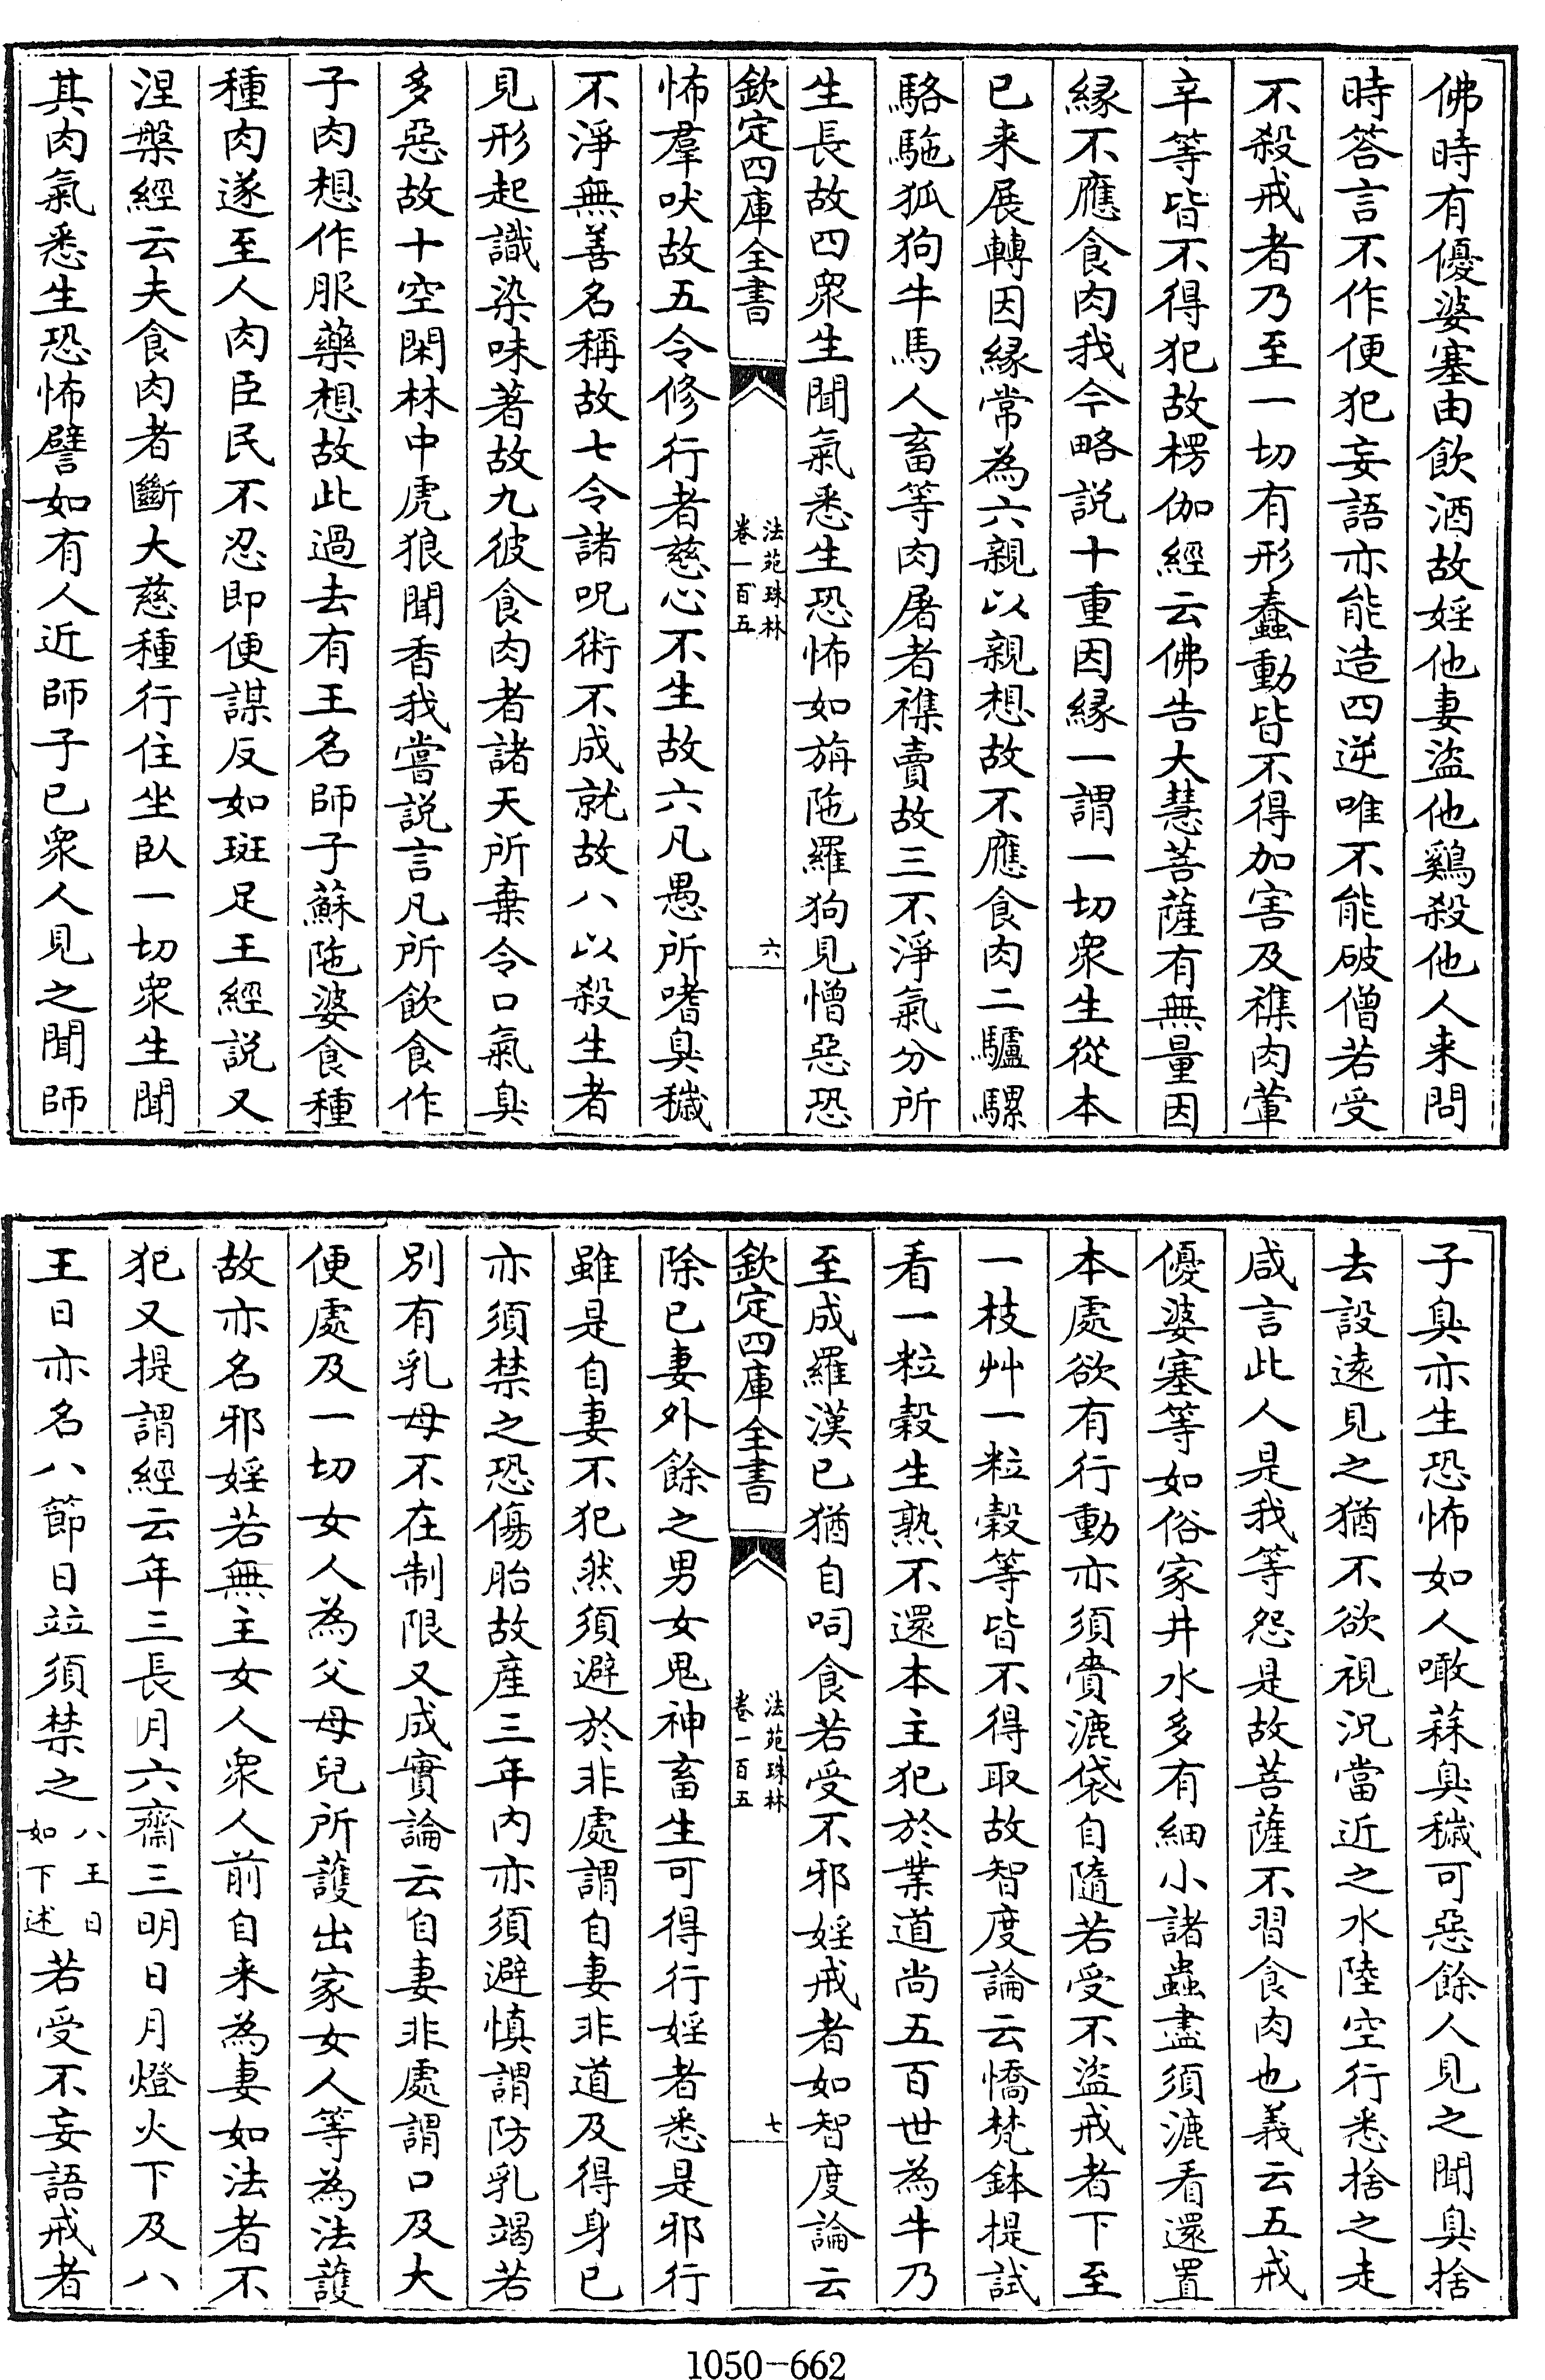 佛時有優婆塞由飲酒故婬他妻盜他鷄殺他人来問
時答言不作便犯妄語亦能造四逆唯不能破僧若受
不殺戒者乃至一切有形蠢動皆不得加害及襍肉葷
辛等皆不得犯故楞伽經云佛告大慧菩薩有無量因
緣不應食肉我今略說十重因緣一謂一切衆生從本
已来展轉因緣常為六親以親想故不應食肉二驢騾
駱駞狐狗牛馬人畜等肉屠者襍賣故三不淨氣分所
生長故四衆生聞氣悉生恐怖如旃陁羅狗見憎惡恐
欽定四庫全書
法苑珠林
卷一百五
六
怖羣吠故五令修行者慈心不生故六凡愚所嗜臭穢
不淨無善名稱故七令諸呪術不成就故八以殺生者
見形起識染味著故九彼食肉者諸天所棄令口氣臭
多惡故十空閑林中虎狼聞香我嘗説言凡所飲食作
子肉想作服藥想故此過去有王名師子蘇陁婆食種
種肉遂至人肉臣民不忍即便謀反如斑足王經說又
涅槃經云夫食肉者斷大慈種行住坐臥一切衆生聞
其肉氣悉生恐怖譬如有人近師子已衆人見之聞師
子臭亦生恐怖如人噉蒜臭穢可惡餘人見之聞臭捨
去設遠見之猶不欲視況當近之水陸空行悉捨之走
咸言此人是我等怨是故菩薩不習食肉也義云五戒
優婆塞等如俗家井水多有細小諸蟲盡須漉看還置
本處欲有行動亦須賷漉袋自隨若受不盜戒者下至
一枝艸一粒穀等皆不得取故智度論云憍梵鉢提試
看一粒穀生熟不還本主犯於業道尚五百世為牛乃
至成羅漢已猶自呞食若受不邪婬戒者如智度論云
欽定四庫全書
法苑珠林
卷一百五
七
除已妻外餘之男女鬼神畜生可得行婬者悉是邪行
雖是自妻不犯然須避於非處謂自妻非道及得身已
亦須禁之恐傷胎故産三年内亦須避慎謂防乳竭若
別有乳母不在制限又成實論云自妻非處謂口及大
便處及一切女人為父母兒所護出家女人等為法護
故亦名邪婬若無主女人衆人前自来為妻如法者不
犯又提謂經云年三長月六齋三明日月燈火下及八
王日亦名八節日竝須禁之八王日如下述若受不妄語戒者
1050-662